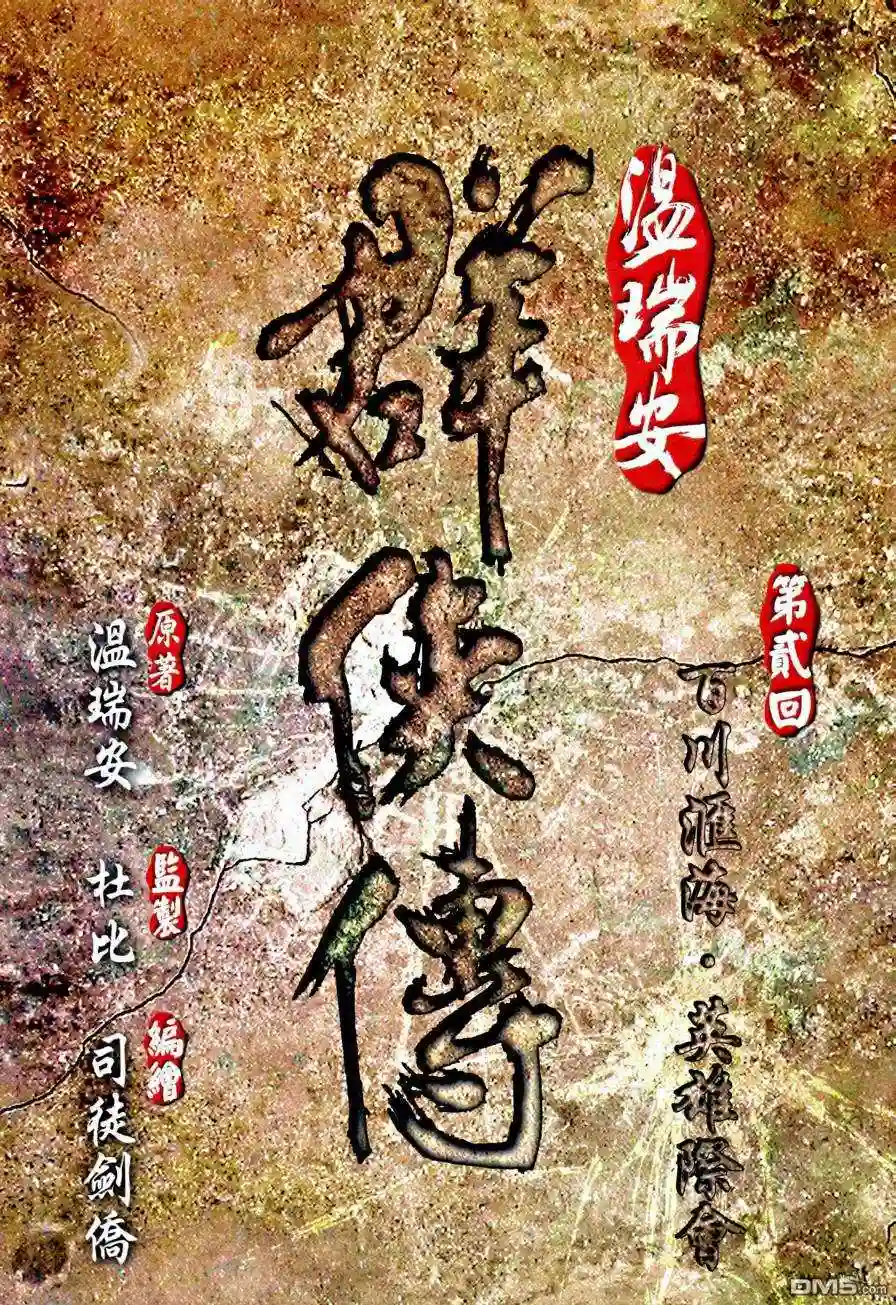 溫瑞安
群俠傳
第貳回
百川滙海·英雄際會
原著
溫瑞安
監製
杜比
編繪
司徒劍僑
DM5.com